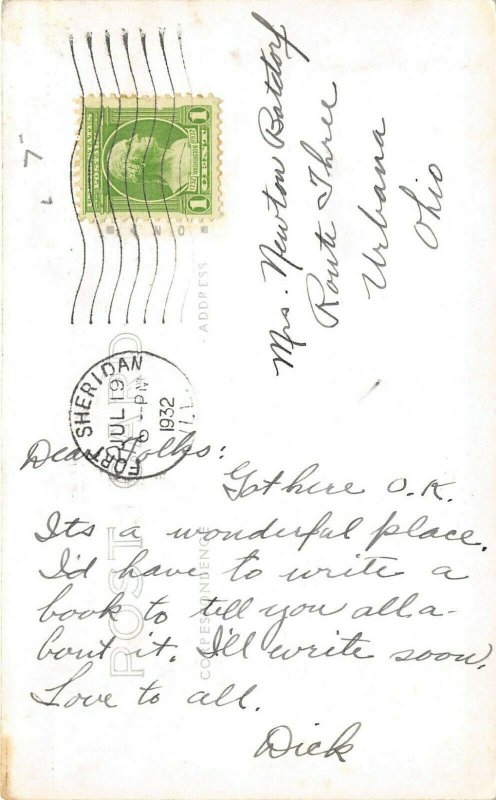 UNITED STATES POSTAGE
1 CENT 1
7
POST CARD
ADDRESS
CORRESPONDENCE
FORT SHERIDAN
JUL 19
PM
1932
ILL.
Mrs. Newton Batdorf
Route Three
Urbana
Ohio
Dear Folks:
Got here O.K.
Its a wonderful place.
I'd have to write a
book to tell you all a-
bout it. I'll write soon.
Love to all.
Dick